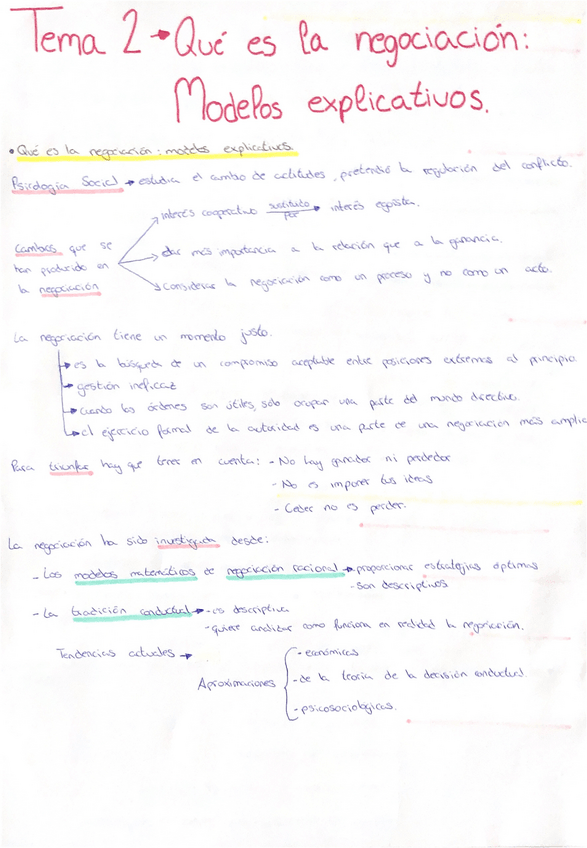 Tema 2 → Qué es la negociación:
Modelos explicativos.
• Qué es la negociación: modelos explicativos
Psicología Social → estudia el cambio de actitudes, pretendió la regulación del conflicto.
Cambios que se han producido en la negociación
interés cooperativo sustituido por → interés egoísta.
dar más importancia a la relación que a la ganancia.
Considerar la negociación como un proceso y no como un acto.
La negociación tiene un momento justo.
→ es la búsqueda de un compromiso aceptable entre posiciones extremas al principio.
→ gestión ineficaz
→ cuando las órdenes son útiles, solo ocupan una parte del mundo directivo.
→ el ejercicio formal de la autoridad es una parte de una negociación más amplia
Para triunfar hay que tener en cuenta: - No hay ganador ni perdedor
- No es imponer tus ideas
- Ceder no es perder.
La negociación ha sido investigada desde:
- Los modelos matemáticos de negociación racional → proporcionar estrategias óptimas
- son descriptivos
- La tradición conductual → - es descriptiva
- quiere analizar como funciona en realidad la negociación.
Tendencias actuales →
Aproximaciones
- económicas
- de la teoría de la decisión conductual.
- psicosociológicas.